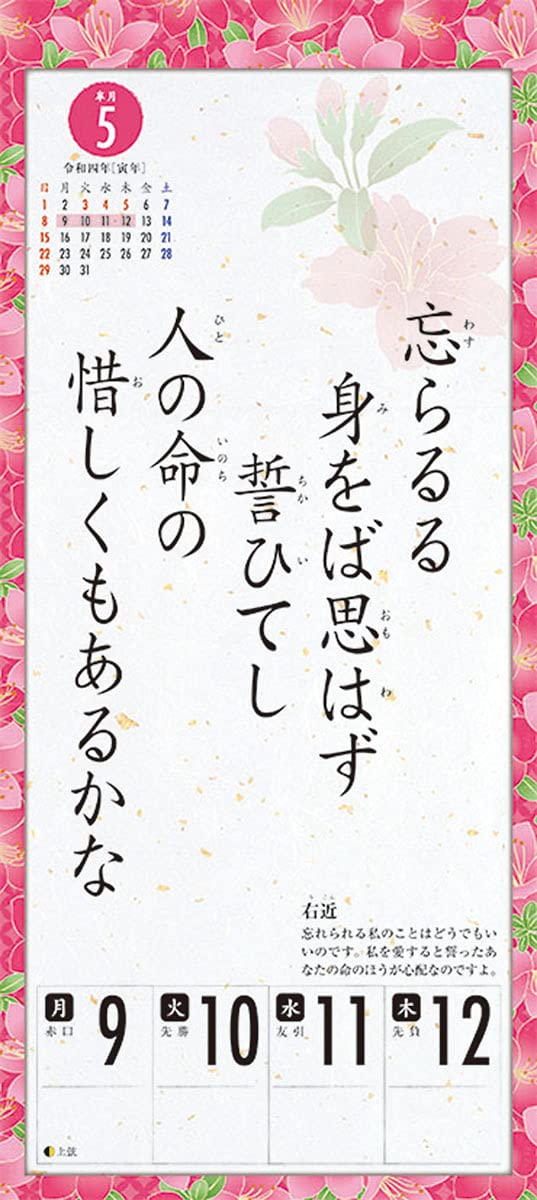 皐月
5
令和四年[寅年]
日 月 火 水 木 金 土
1 2 3 4 5 6 7
8 9 10 11 12 13 14
15 16 17 18 19 20 21
22 23 24 25 26 27 28
29 30 31
忘らるる
わす
身をば思はず
み おも わ
誓ひてし
ちか い
人の命の
ひと いのち
惜しくもあるかな
お
右近
うこん
忘れられる私のことはどうでもい
いのです。私を愛すると誓ったあ
なたの命のほうが心配なのですよ。
月 9
赤口
上弦
火 10
先勝
水 11
友引
木 12
先負